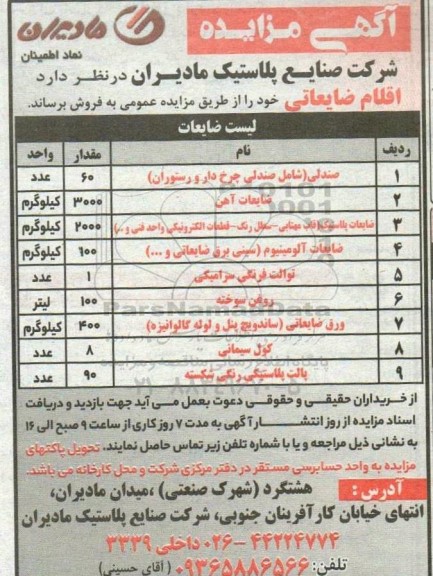 آگهی مزایده
مادیران
نماد اطمینان
شرکت صنایع پلاستیک مادیران در نظر دارد
اقلام ضایعاتی خود را از طریق مزایده عمومی به فروش برساند.
لیست ضایعات
ردیف نام مقدار واحد
۱ صندلی(شامل صندلی چرخ دار و رستوران) ۶۰ عدد
۲ ضایعات آهن ۳۰۰۰ کیلوگرم
۳ ضایعات پلاستیک(قاب مهتابی -سطل رنگ-قطعات الکترونیکی واحد فنی و ...) ۲۰۰۰ کیلوگرم
۴ ضایعات آلومینیوم (سینی برق ضایعاتی و ...) ۶۰۰ کیلوگرم
۵ توالت فرنگی سرامیکی ۱ عدد
۶ روغن سوخته ۱۰۰ لیتر
۷ ورق ضایعاتی (ساندویچ پنل و لوله گالوانیزه) ۴۰۰ کیلوگرم
۸ کول سیمانی ۸ عدد
۹ پالت پلاستیکی رنگی شکسته ۹۰ عدد
ParsNamadData
از خریداران حقیقی و حقوقی دعوت بعمل می آید جهت بازدید و دریافت
اسناد مزایده از روز انتشار آگهی به مدت ۷ روز کاری از ساعت ۹ صبح الی ۱۶
به نشانی ذیل مراجعه و یا با شماره تلفن زیر تماس حاصل نمایند. تحویل پاکتهای
مزایده به واحد حسابرسی مستقر در دفتر مرکزی شرکت و محل کارخانه می باشد.
آدرس : هشتگرد (شهرک صنعتی) ،میدان مادیران،
انتهای خیابان کارآفرینان جنوبی، شرکت صنایع پلاستیک مادیران
۰۲۶-۴۴۲۲۴۷۷۴ داخلی ۳۳۳۹
تلفن: ۰۹۳۶۵۸۸۶۵۶۶ ( آقای حسینی)